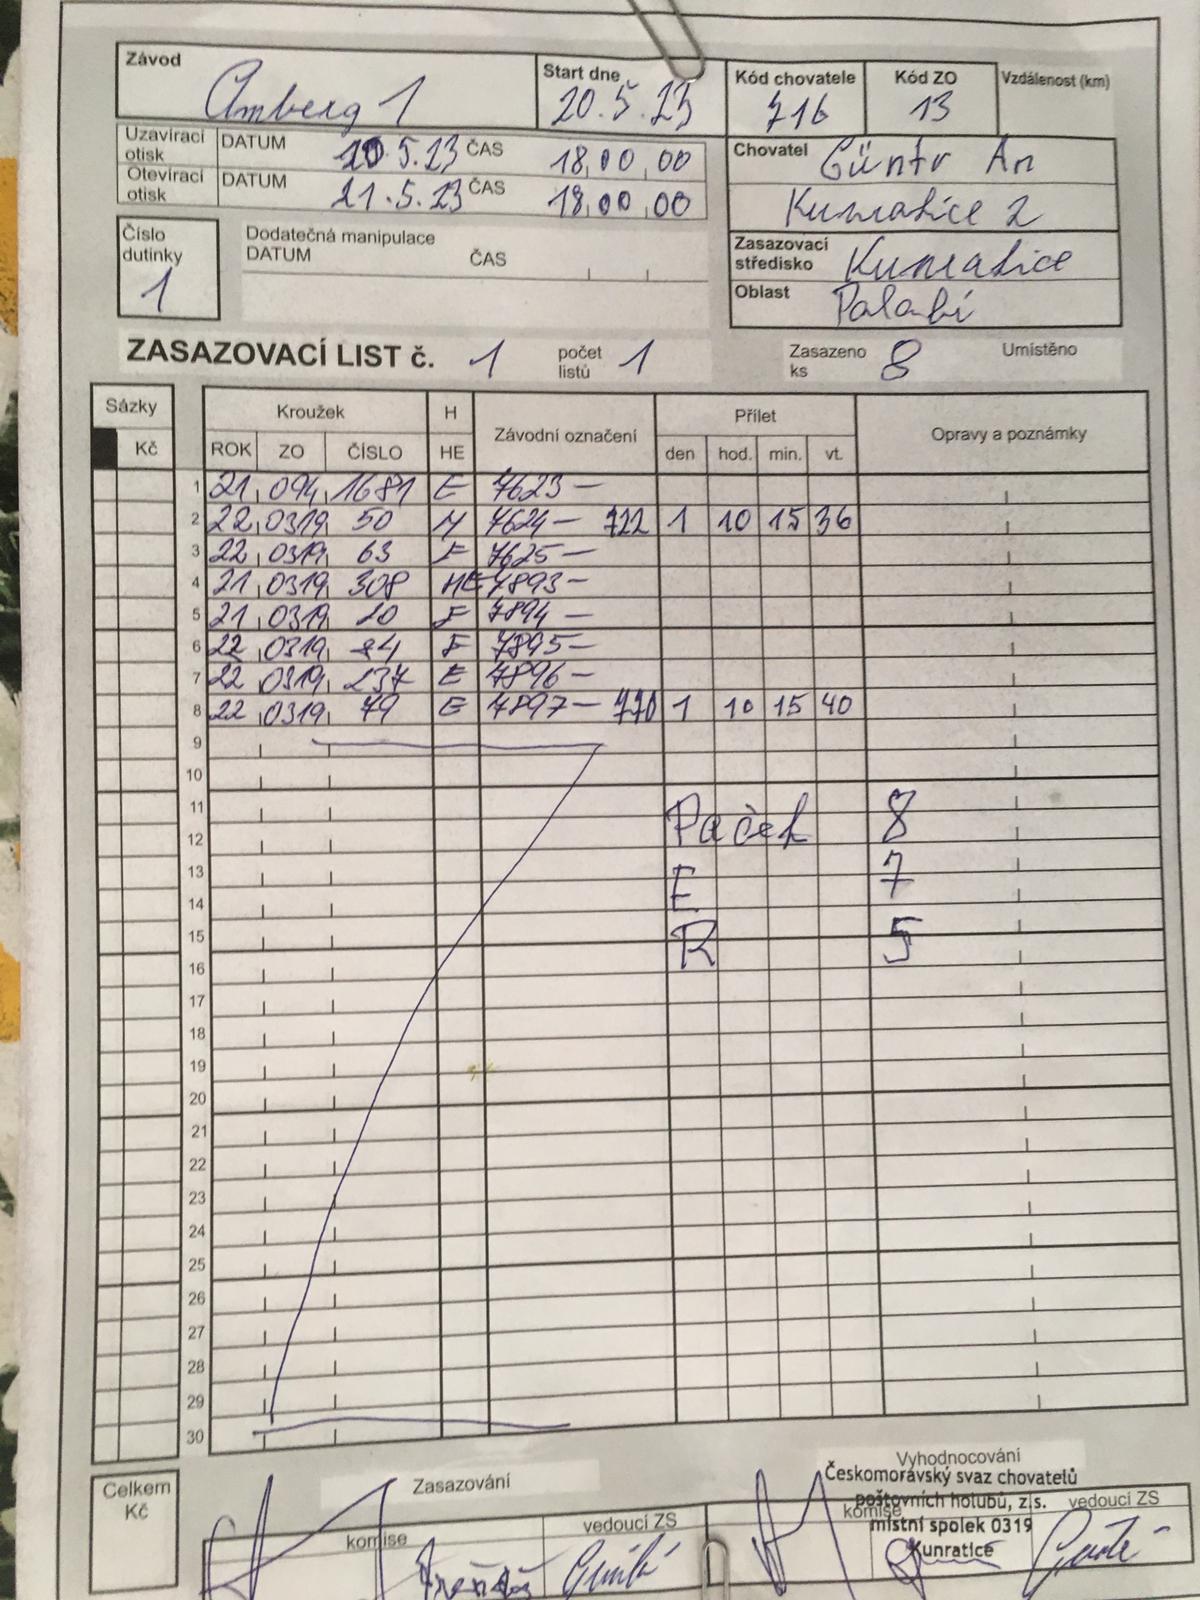 Závod Amberg 1 Start dne 20.5.23 Kód chovatele 716 Kód ZO 13 Vzdálenost (km)
Uzavírací otisk DATUM 20.5.23 ČAS 18,00,00
Otevírací otisk DATUM 21.5.23 ČAS 18,00,00
Chovatel Güntr An
Kunratice 2
Číslo dutinky 1
Dodatečná manipulace
DATUM ČAS
Zasazovací středisko Kunratice
Oblast Polabí
ZASAZOVACÍ LIST č. 1 počet listů 1 Zasazeno ks 8 Umístěno
Sázky Kroužek H Závodní označení Přílet Opravy a poznámky
Kč ROK ZO ČÍSLO HE den hod. min. vt.
1 21 094 1681 E 7623 —
2 22 0319 50 H 7624 — 722 1 10 15 36
3 22 0319 63 E 7625 —
4 21 0319 308 HE 7893 —
5 21 0319 20 E 7894 —
6 22 0319 E 7895 —
7 22 0319 237 E 7896 —
8 22 0319 79 E 7897 — 770 1 10 15 40
9
10
11
Paček 8
12
13
E 7
14
15
R 5
16
17
18
19
20
21
22
23
24
25
26
27
28
29
30
Celkem Kč
Zasazování
komise
vedoucí ZS
Vyhodnocování
Českomoravský svaz chovatelů
poštovních holubů, z.s.
místní spolek 0319
Kunratice
komise
vedoucí ZS